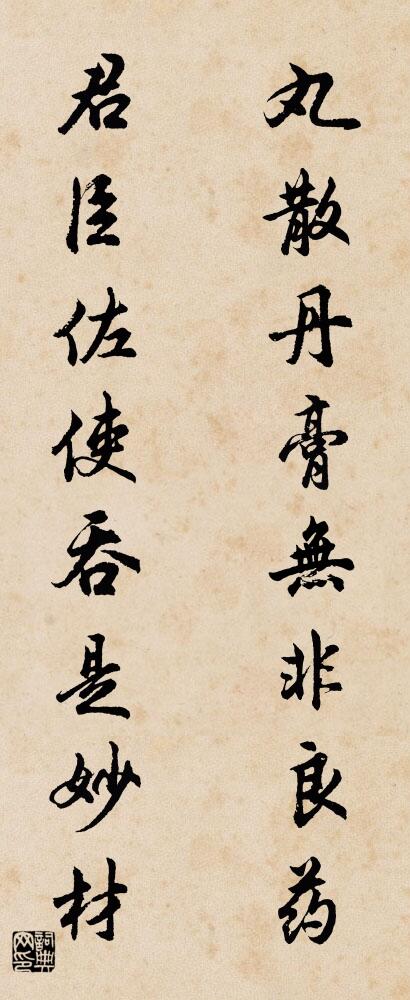 丸散丹膏無非良药
君臣佐使吞是妙材
詞典网印